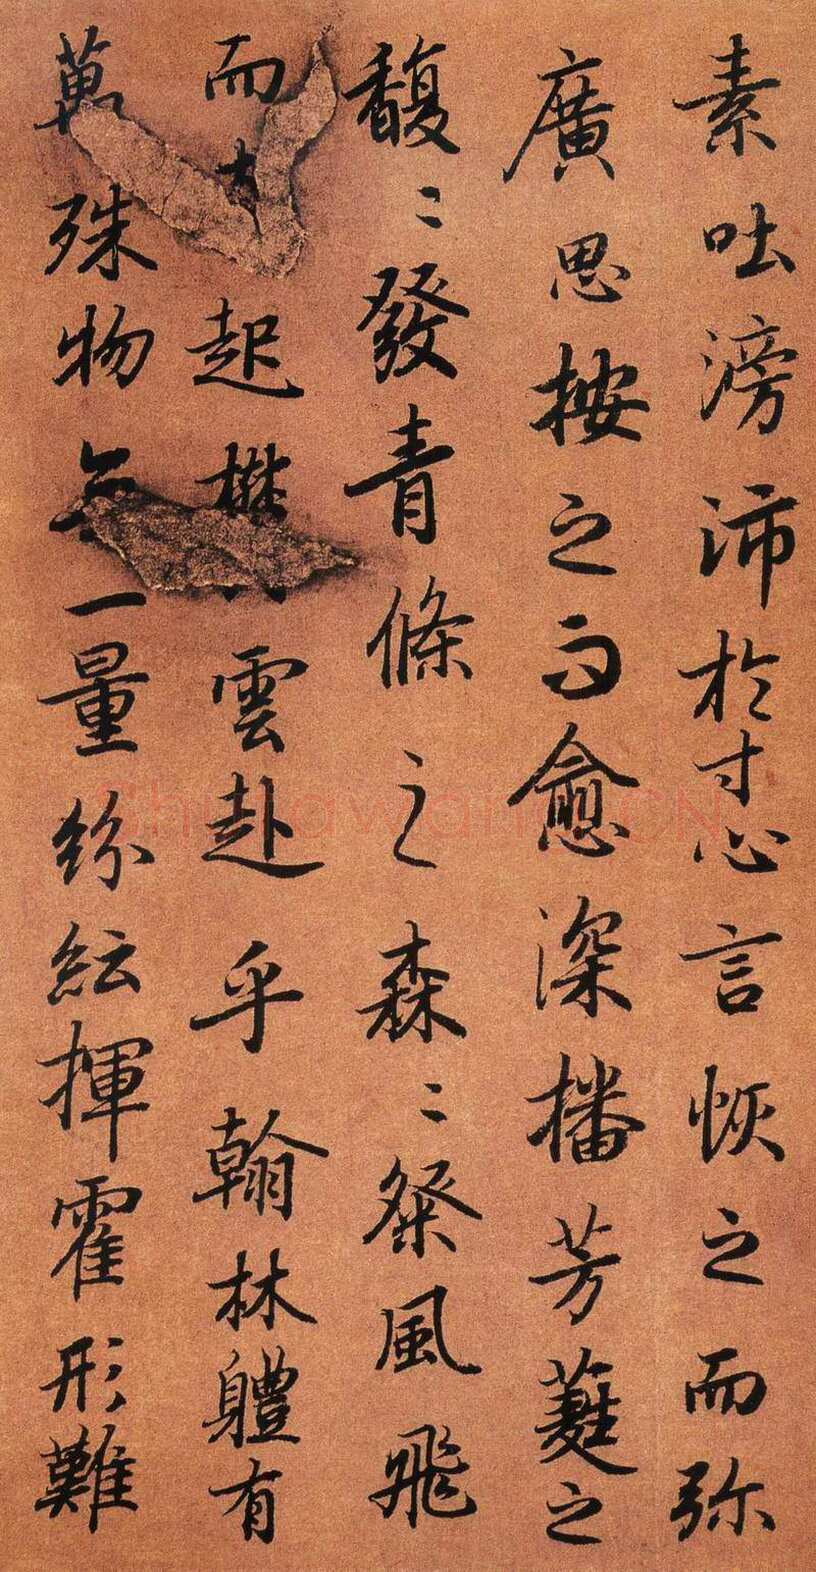 素吐滂沛於寸心言恢之而弥
廣思按之而愈深播芳蕤之
馥〻發青條之森〻粲風飛
而起雲赴乎翰林體有
萬殊物一量紛紜揮霍形難